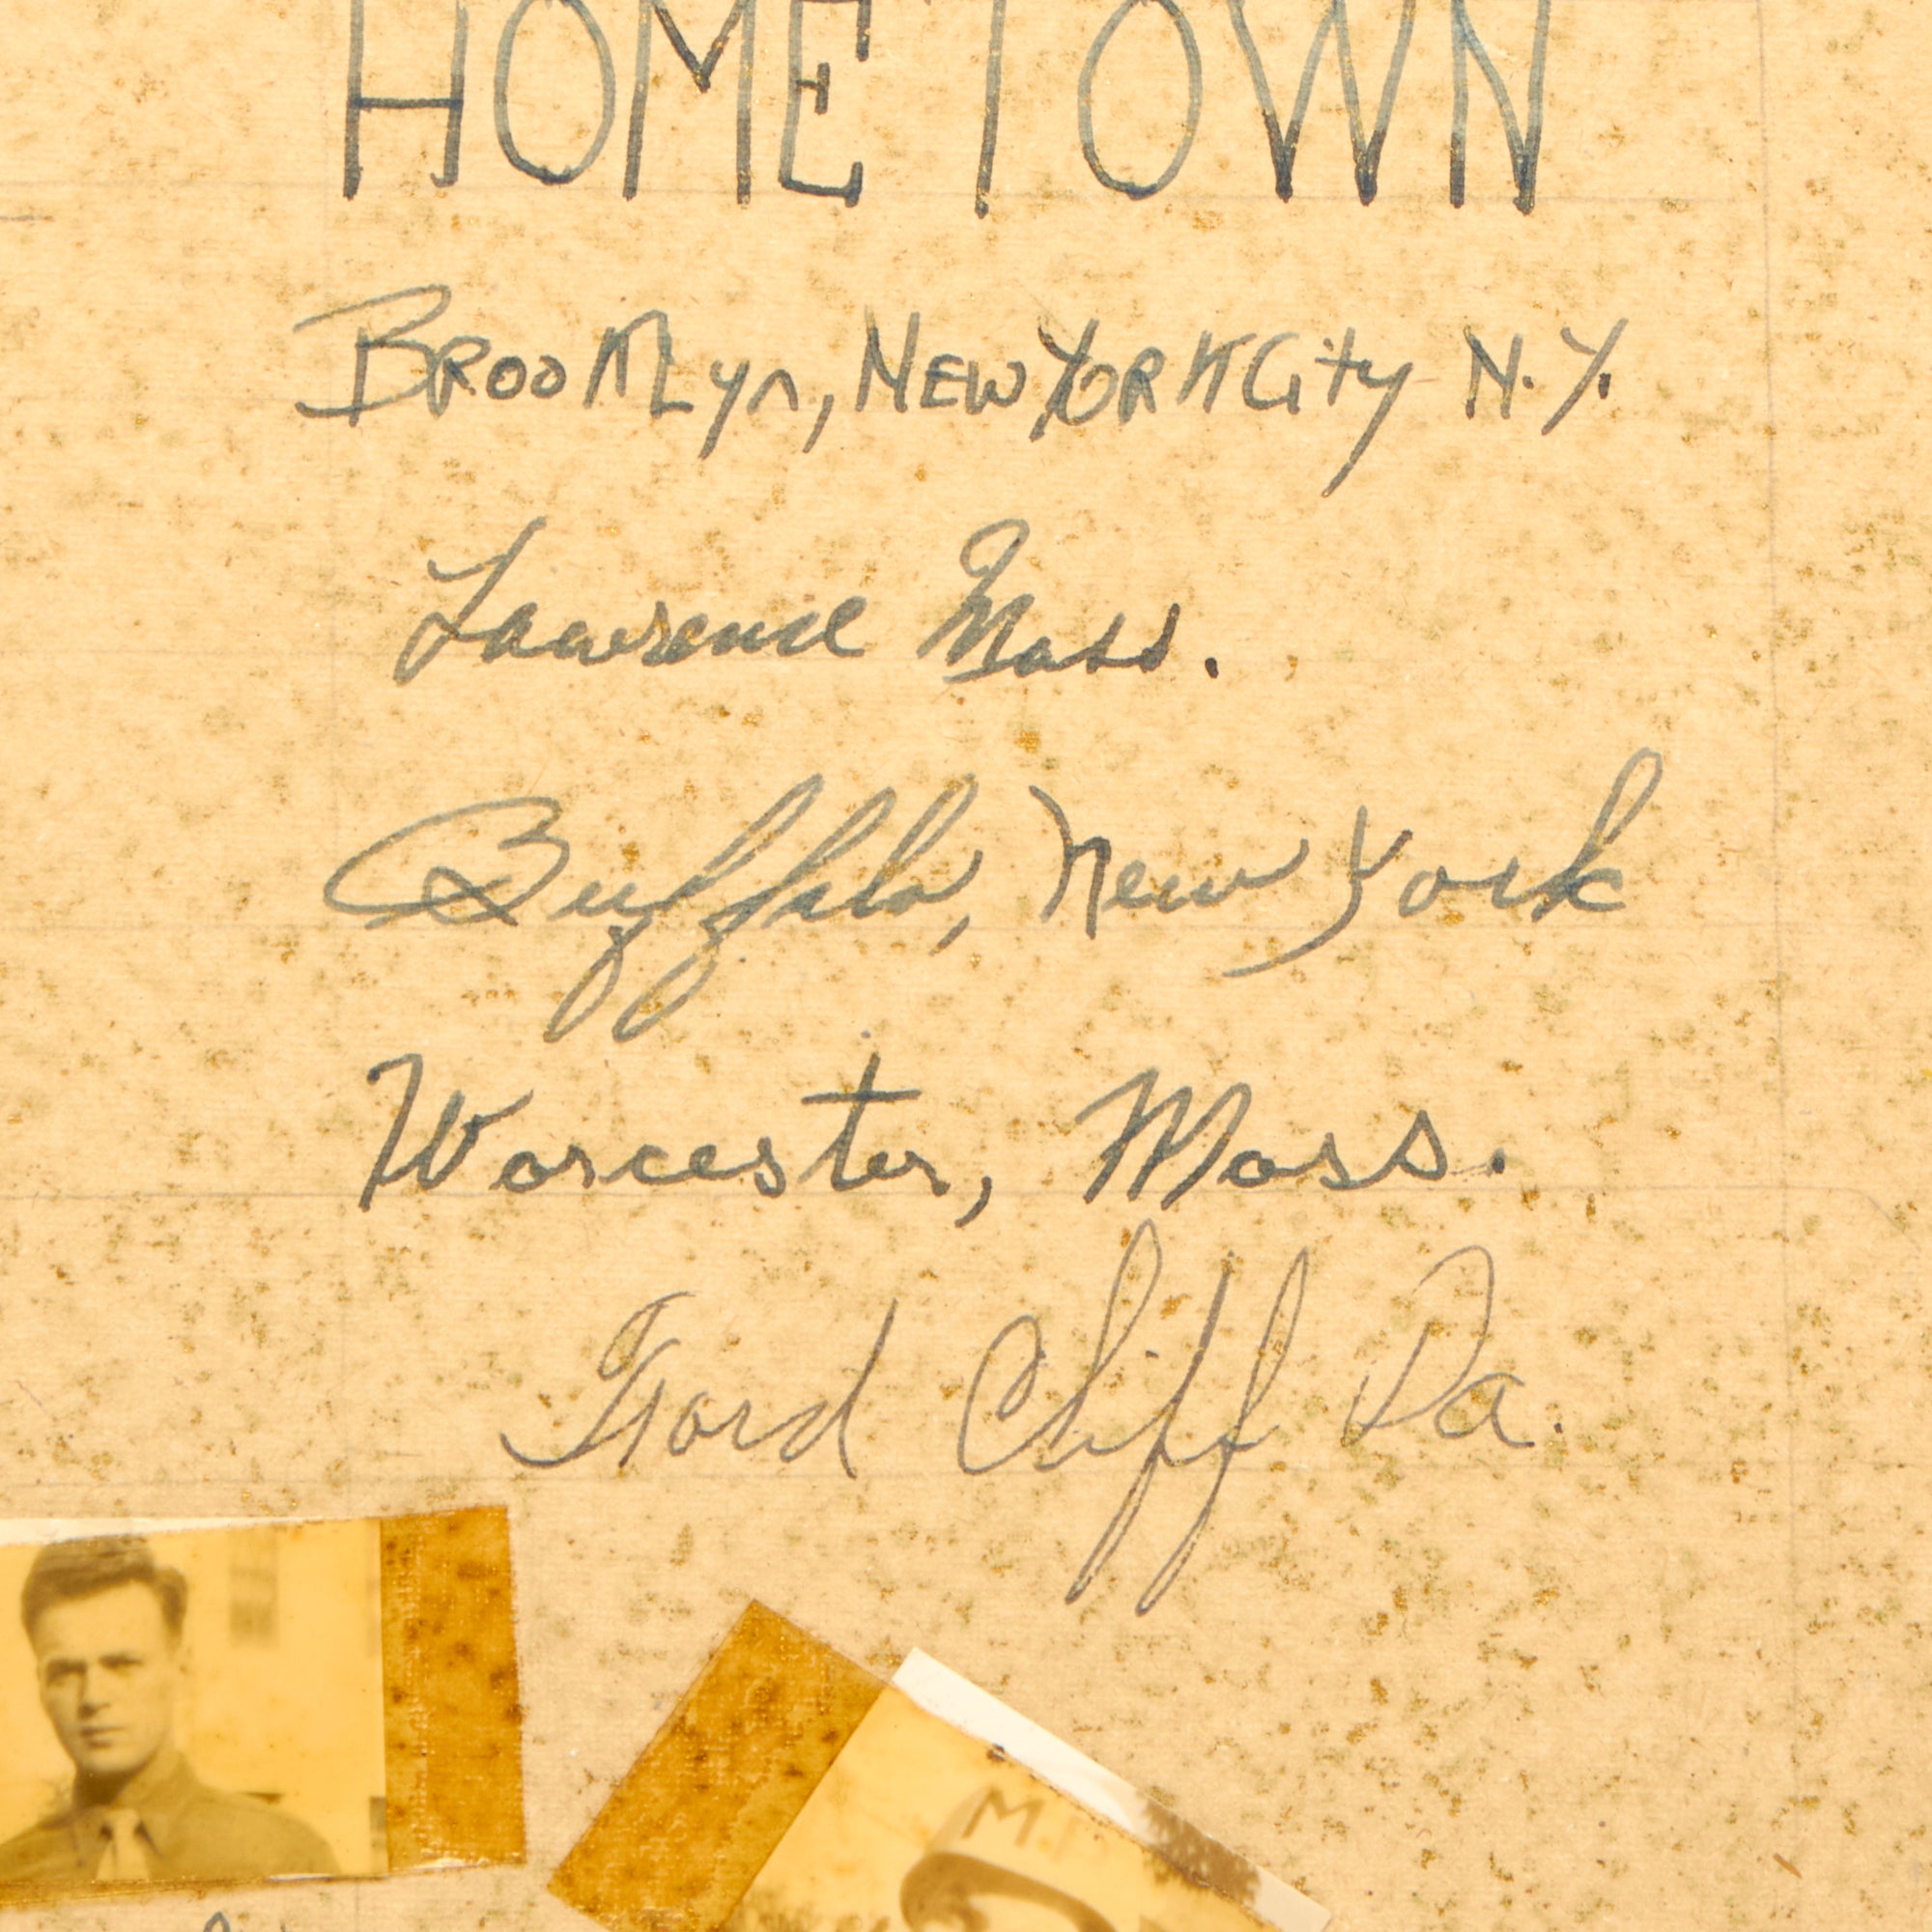 HOME TOWN
Brooklyn, New York City N.Y.
Lawrence Mass.
Buffalo, New York
Worcester, Mass.
Ford Cliff Pa.
M.P.